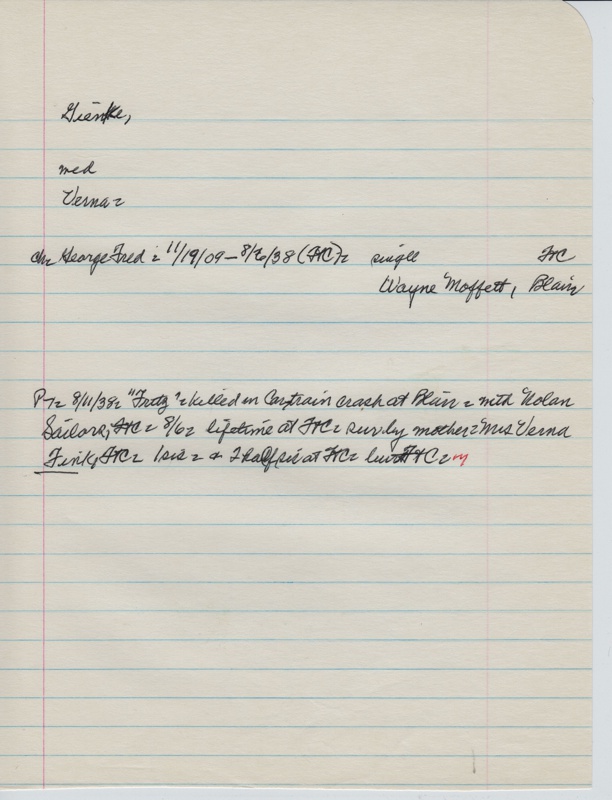 Gienke,
med
Verna =
ch = George Fred = 11/19/09 – 8/6/38 (FtC) = single FtC
Wayne Moffett, Blair
PT = 8/11/38 = "Fritz" = killed in Car train crash at Blair = with Nolan
Sailors, FtC = 8/6 = lifetime at FtC = sur. by mother = Mrs Verna
Fink, FtC = 1 sis = & 2 half sis at FtC = bur FtC =